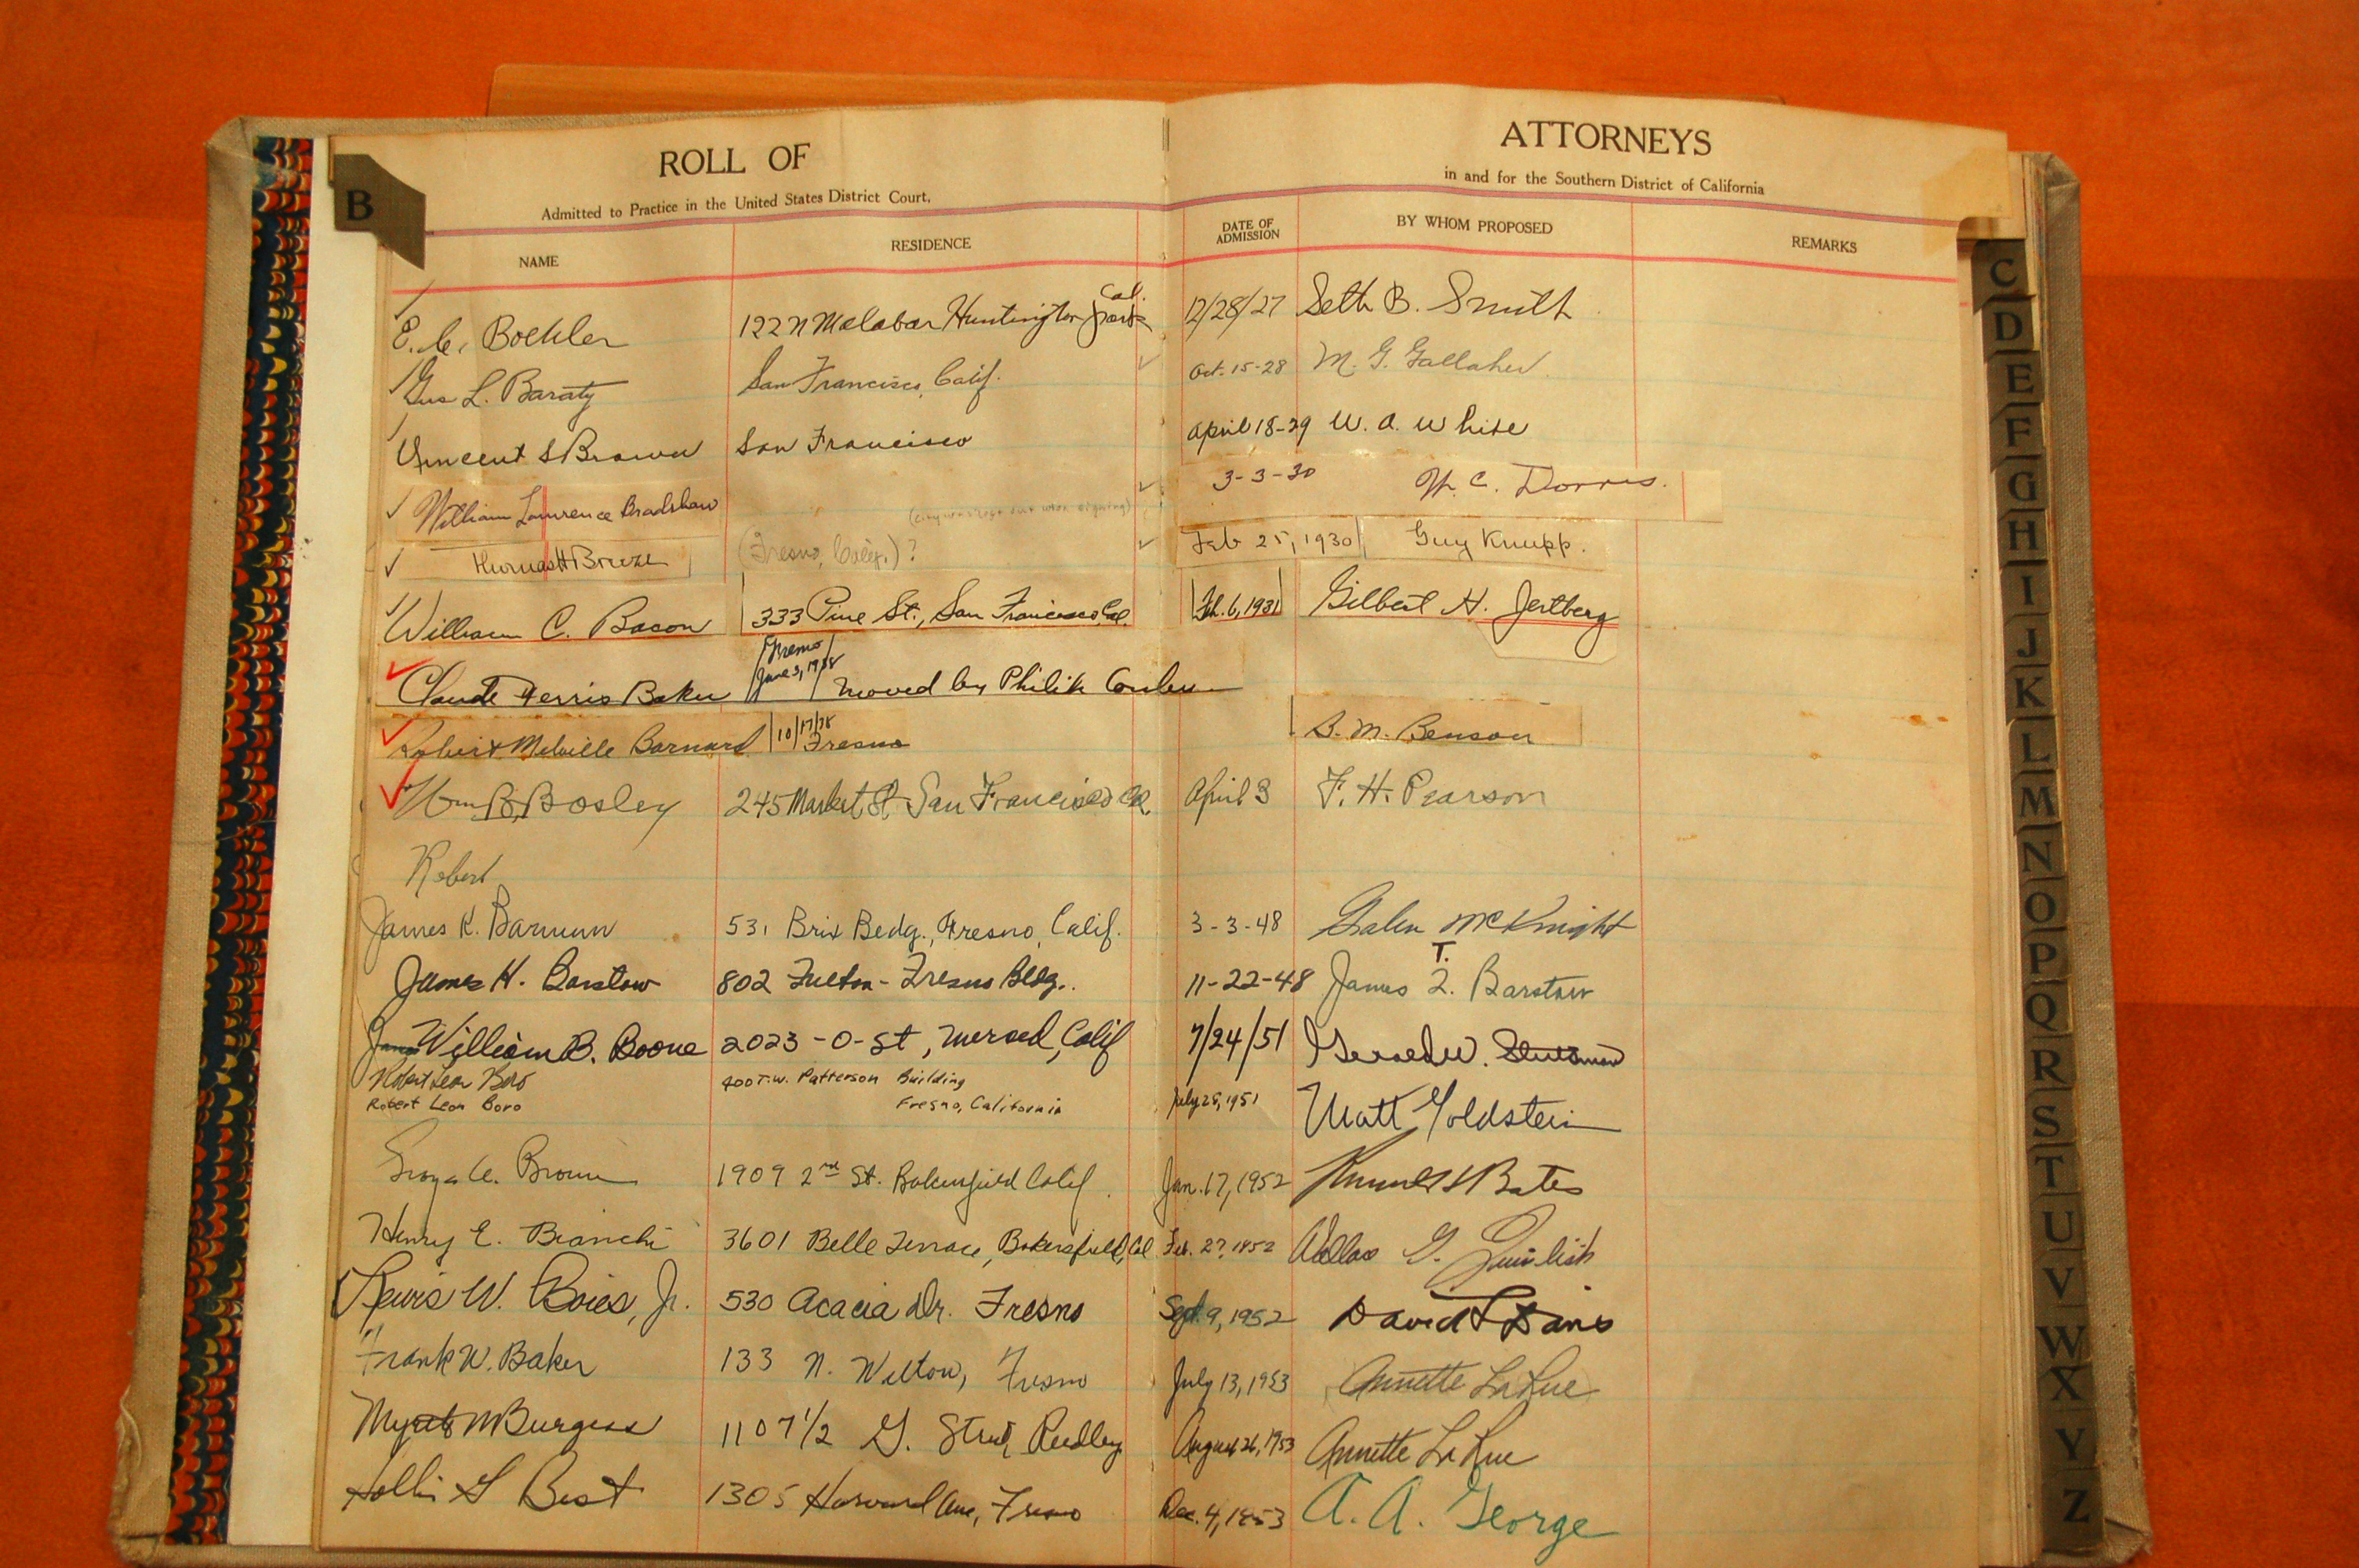 ROLL OF ATTORNEYS
Admitted to Practice in the United States District Court, in and for the Southern District of California
B
NAME RESIDENCE DATE OF ADMISSION BY WHOM PROPOSED REMARKS
E. C. Boehler 122 N Malabar Huntington Park Cal. 12/28/27 Seth B. Smith
Gus L. Baraty San Francisco, Calif. Oct. 15-28 M. G. Gallaher
Vincent S Brown San Francisco April 18-29 W. A. White
William Lawrence Bradshaw 3-3-30 W. C. Dorris.
Thomas H Breeze (Fresno, Calif.) ? Feb 25, 1930 Guy Knupp.
William C. Bacon 333 Pine St., San Francisco, Cal. Feb. 6, 1931 Gilbert H. Jertberg
Claude Ferris Baker Fresno June 3, 1938 moved by Philip Conley
Robert Melville Barnard 10/17/38 Fresno B. M. Benson
Wm B. Bosley 245 Market St San Francisco Cal April 3 F. H. Pearson
Robert
James K. Barnum 531 Brix Bldg., Fresno, Calif. 3-3-48 Galen McKnight
James H. Barstow 802 Fulton-Fresno Bldg. 11-22-48 James T. Barstow
William B. Boone 2023 - O - St, Merced, Calif 7/24/51 Gerald W. Stutsman
Robert Leon Boro 400 T.W. Patterson Building
Robert Leon Boro Fresno, California July 25, 1951 Matt Goldstein
Brown 1909 2nd St. Bakersfield Calif. Jan. 17, 1952 Bates
Henry E. Bianchi 3601 Belle Terrace, Bakersfield, Cal Feb. 27, 1952 G.
Lewis W. Boies, Jr. 530 Acacia Dr. Fresno Sept. 9, 1952 David
Frank W. Baker 133 N. Wilton, Fresno July 13, 1953 Annette LaRue
M Burgess 1107 1/2 G. Street, Reedley August 26, 1953 Annette LaRue
Hollis G Best 1305 Harvard Ave, Fresno Dec. 4, 1953 A. A. George
C
D
E
F
G
H
I
J
K
L
M
N
O
P
Q
R
S
T
U
V
W
X
Y
Z